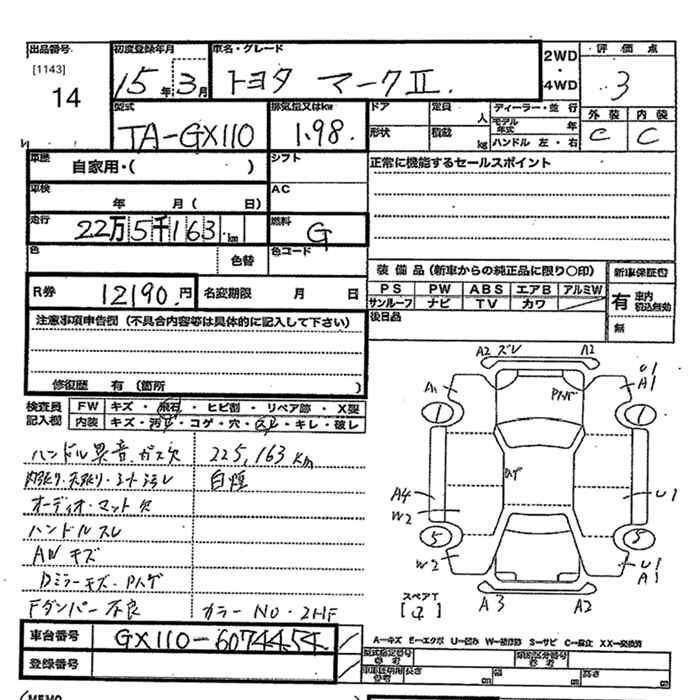 出品番号
[1143]
14
初度登録年月
15年3月
車名・グレード
トヨタ マークⅡ.
2WD
・
4WD
評価点
3
型式
TA-GX110
排気量又はkw
1.98.
ドア
定員
人
形状
積載
kg
ディーラー・並行
モデル年式 年
ハンドル 左・右
外装
C
内装
C
車歴
自家用・( )
シフト
正常に機能するセールスポイント
車検
年 月( 日)
AC
走行
22万5千163 km
燃料
G
色
色替
色コード
装備品(新車からの純正品に限り〇印)
PS PW ABS エアB アルミW
サンルーフ ナビ TV カワ
新車保証書
有 車内積込無効
無
後日品
R券
12190.円
名変期限 月 日
注意事項申告欄(不具合内容等は具体的に記入して下さい)
修復歴 有(箇所 )
検査員記入欄
FW キズ・飛石・ヒビ割・リペア跡・X製
内装 キズ・汚レ・コゲ・穴・スレ・キレ・破レ
ハンドル異音.ガス欠
225,163km
内張り・天張り・シート汚レ
白煙
オーディオ・マット欠
ハンドルスレ
AWキズ
Dミラーキズ・Pハゲ
Fダンパー不良
カラーNO.2HF
A2 ズレ A2
U1
A1
1
1
A4
W2
U1
5
5
W2
U1
A1
スペアT
A3
A2
車台番号
GX110-6074454
登録番号
A―キズ E―エクボ U―凹み W―補修跡 S―サビ C―腐立 XX―交換済
型式指定番号
参考
類別区分番号
参考
車庫証明用
参考
長さ
cm
幅
cm
高さ
cm
(MEMO